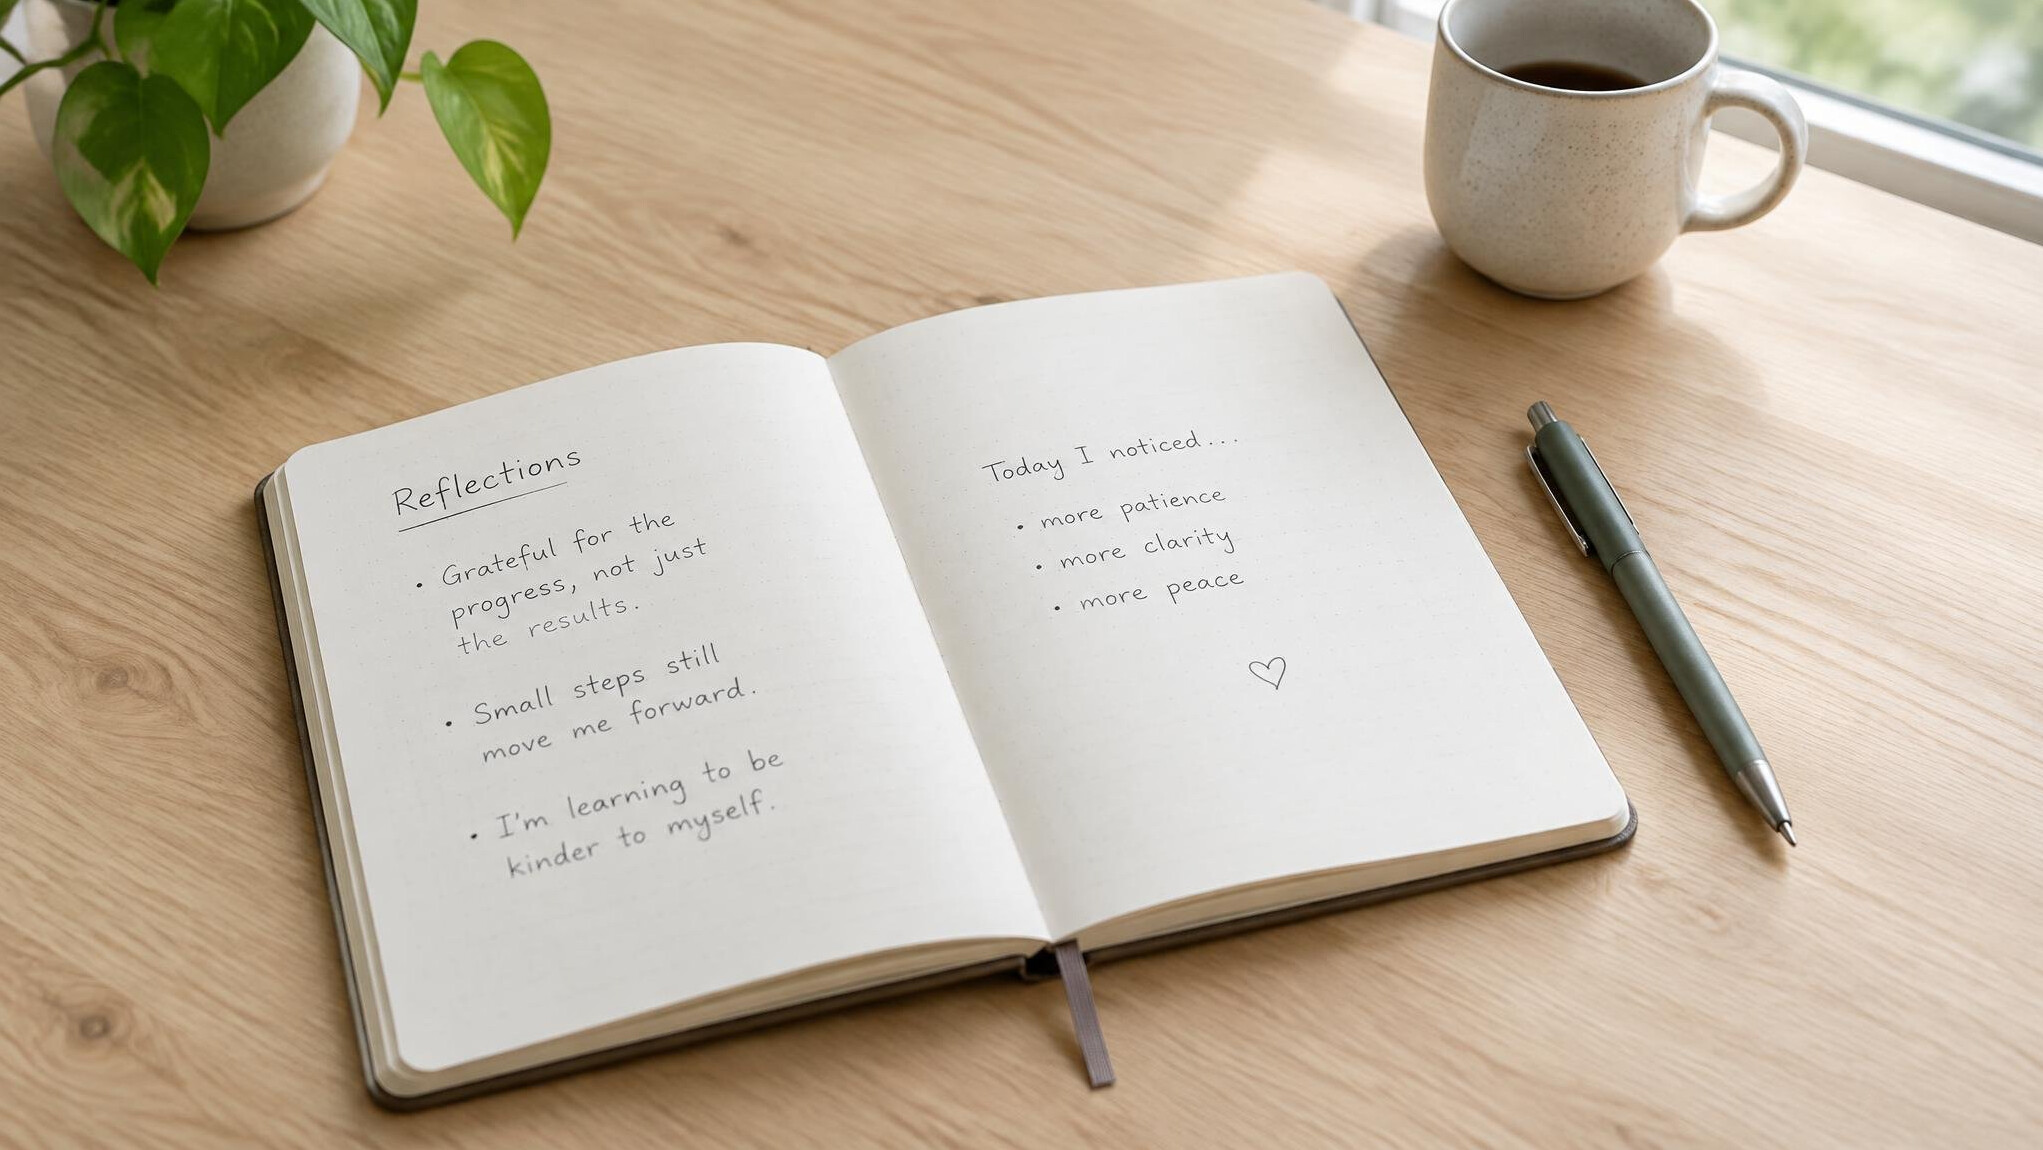 Reflections
• Grateful for the
progress, not just
the results.
• Small steps still
move me forward.
• I'm learning to be
kinder to myself.
Today I noticed...
• more patience
• more clarity
• more peace